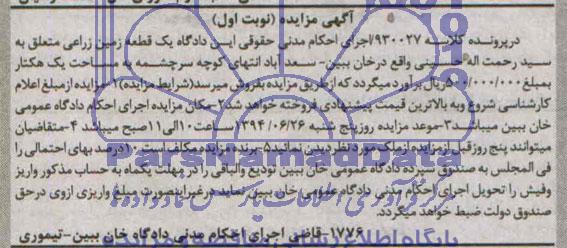 آگهی مزایده (نوبت اول)
درپرونده کلاسه ۹۳۰۰۲۷/اجرای احکام مدنی حقوقی ایـن دادگاه یک قطعه زمین زراعی متعلق به
سید رحمت اله حسینی واقع درخان ببین- سـعد آباد انتهای کوچه سرچشمه به مساحت یک هکتار
بمبلغ ۰۰۰/۰۰۰/ریال بر آورد میگردد که از طریق مزایده بفروش میرسد(شرایط مزایده)۱-مزایده از مبلغ اعلام
کارشناسی شروع وبه بالاترین قیمت پیشنهادی فروخته خواهد شد۲-مکان مزایده اجرای احکام دادگاه عمومی
خان ببین میباشد۳-موعد مزایده روزپنج شنبه ۱۳۹۴/۰۶/۲۶ ساعت۱۰الی۱۱صبح میباشد ۴-متقاضیان
میتوانند پنج روزقبل ازمزایده ازملک مورد نظر دیدن نمایند۵-برنده مزایده مکلف است ۱۰درصد بهای احتمالی را
فی المجلس به صندوق سپرده دادگاه عمومی خان ببین تودیع والباقی را در مهلت یکماه به حساب مذکور واریز
وفیش را تحویل اجرای احکام مدنی دادگاه عمومی خان ببین نماید درغیراینصورت مبلغ واریزی ازوی درحق
صندوق دولت ضبط خواهد میگردد.
۱۷۷۶-قاضی اجرای احکام مدنی دادگاه خان ببین-تیموری
ParsNamadData